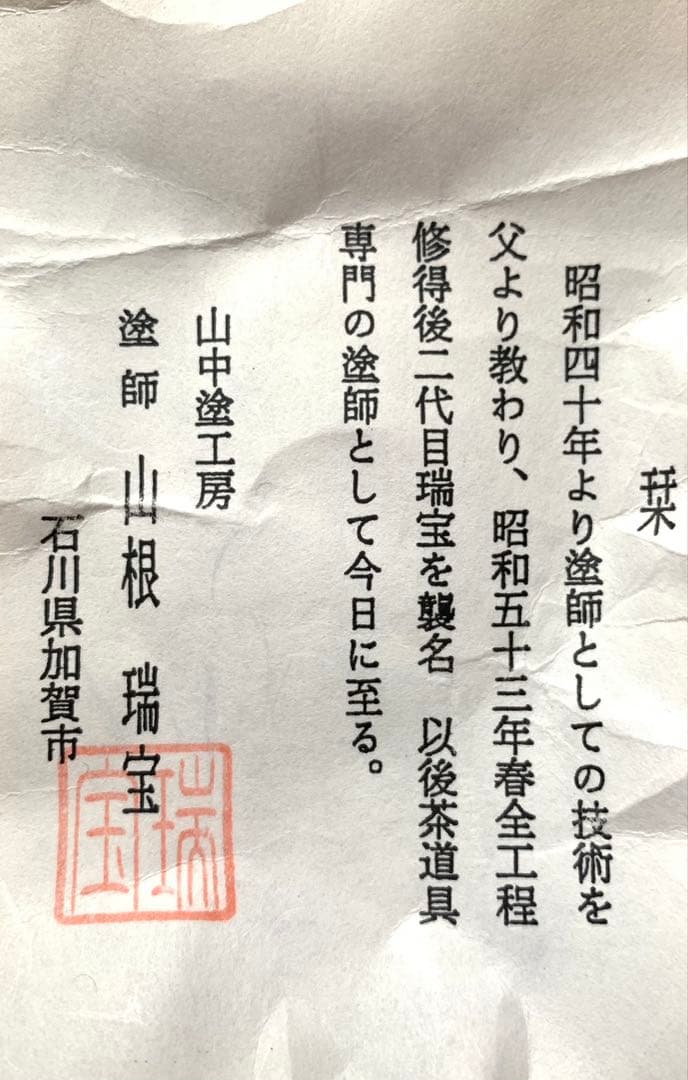 栞
昭和四十年より塗師としての技術を
父より教わり、昭和五十三年春全工程
修得後二代目瑞宝を襲名　以後茶道具
専門の塗師として今日に至る。
山中塗工房
塗師 山根 瑞宝
石川県加賀市
瑞宝